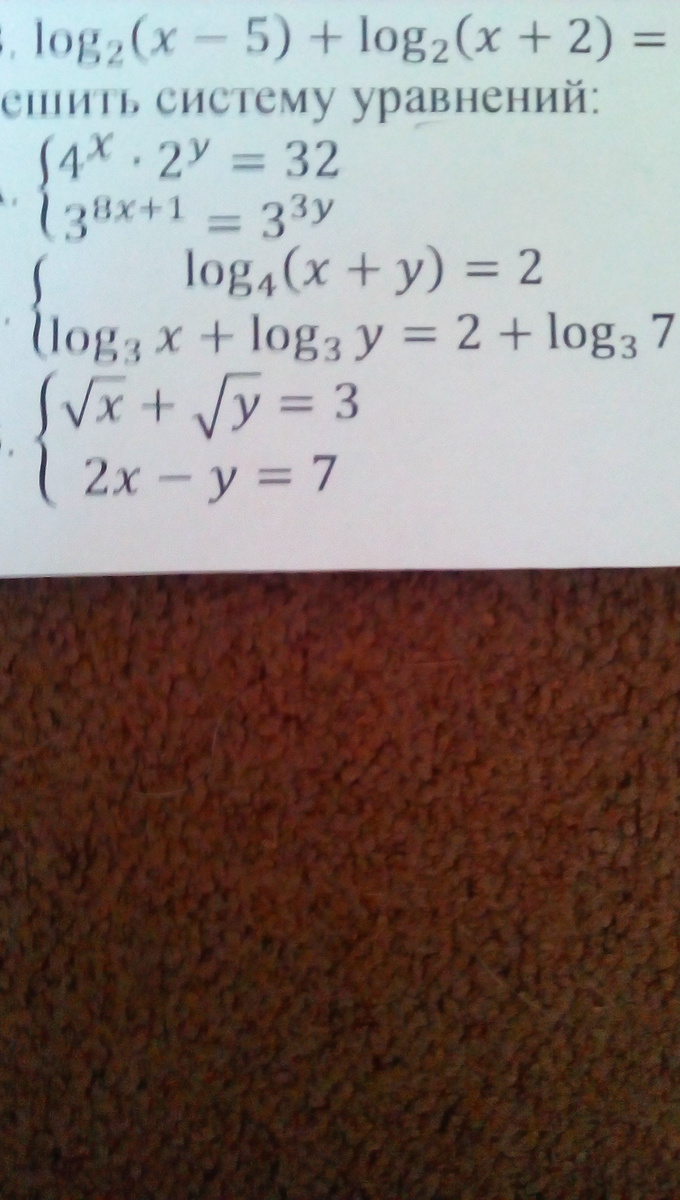 . log₂(x − 5) + log₂(x + 2) =
ешить систему уравнений:
{4ˣ · 2ʸ = 32
3⁸ˣ⁺¹ = 3³ʸ
{log₄(x + y) = 2
log₃ x + log₃ y = 2 + log₃ 7
{√x + √y = 3
2x − y = 7